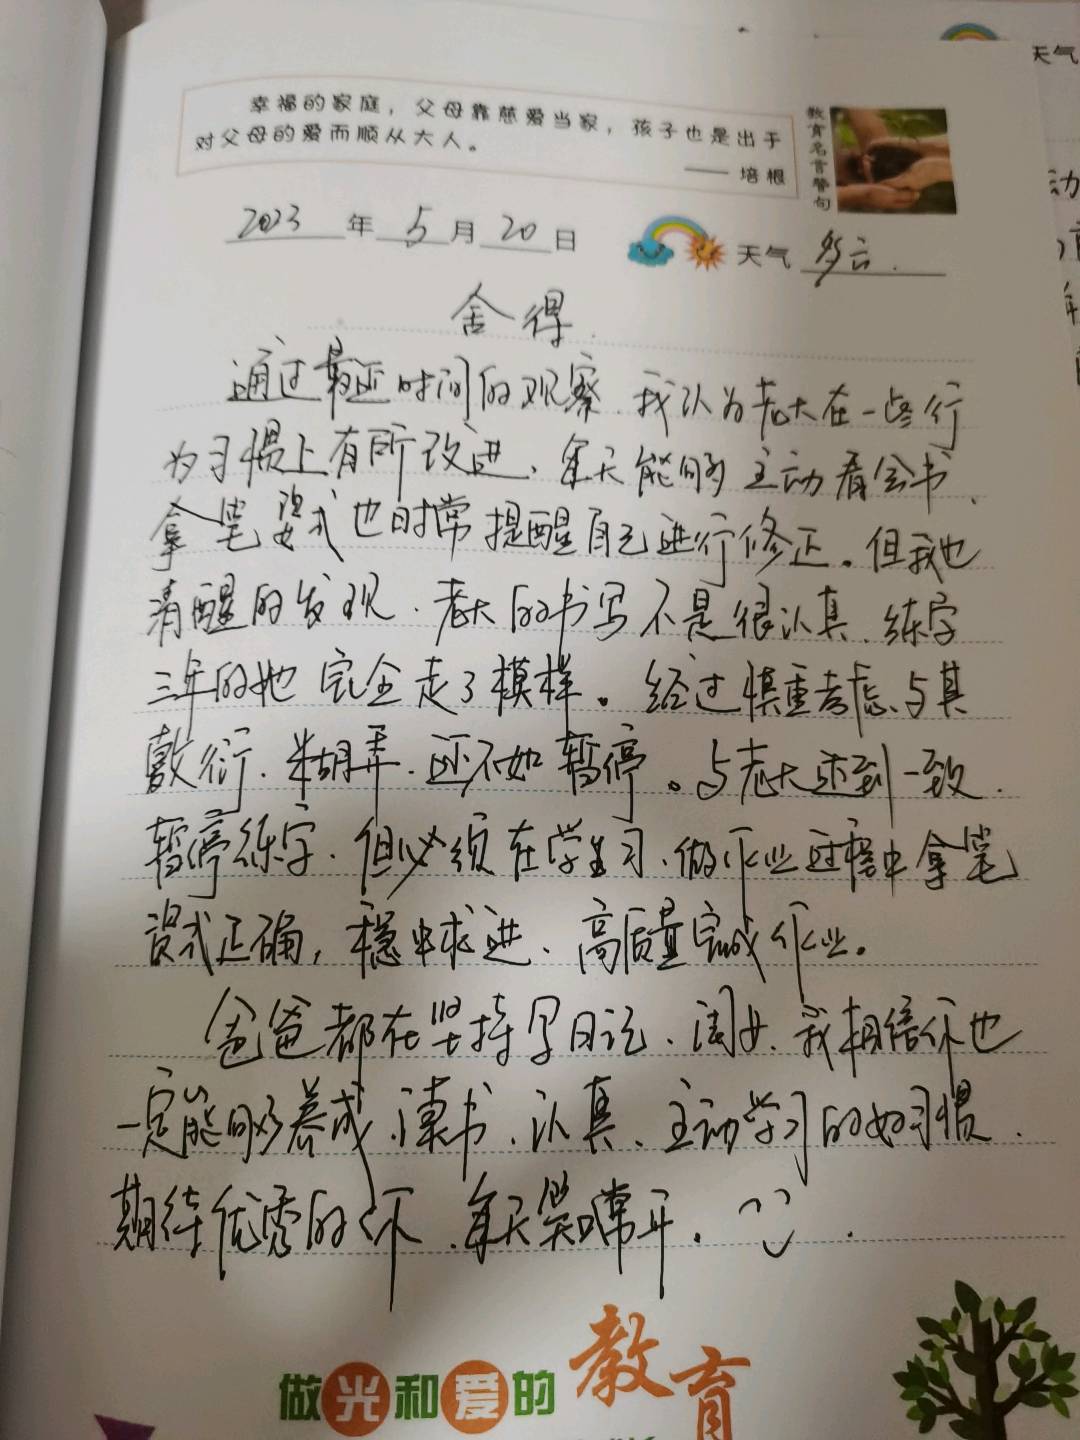 幸福的家庭，父母靠慈爱当家，孩子也是出于
对父母的爱而顺从大人。
—— 培根
教育名言警句
2023 年 5 月 20 日
天气 多云.
天气
舍得.
通过最近时间的观察、我认为老大在一些行
为习惯上有所改进、每天能够主动看会书、
拿笔姿式也时常提醒自己进行修正。但我也
清醒的发现、老大的书写不是很认真、练字
三年的她完全走了模样。经过慎重考虑、与其
敷衍、糊弄、还不如暂停。与老大达到一致、
暂停练字、但必须在学习、做作业过程中拿笔
姿式正确，稳中求进、高质量完成作业。
爸爸都在坚持写日记、闺女、我相信你也
一定能够养成、读书、认真、主动学习的好习惯、
期待优秀的你、每天笑口常开。
做光和爱的教育